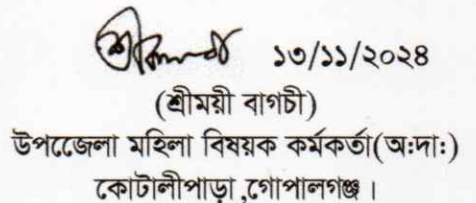 ১৩/১১/২০২৪
(শ্রীময়ী বাগচী)
উপজেলা মহিলা বিষয়ক কর্মকর্তা(অ:দা:)
কোটালীপাড়া ,গোপালগঞ্জ।